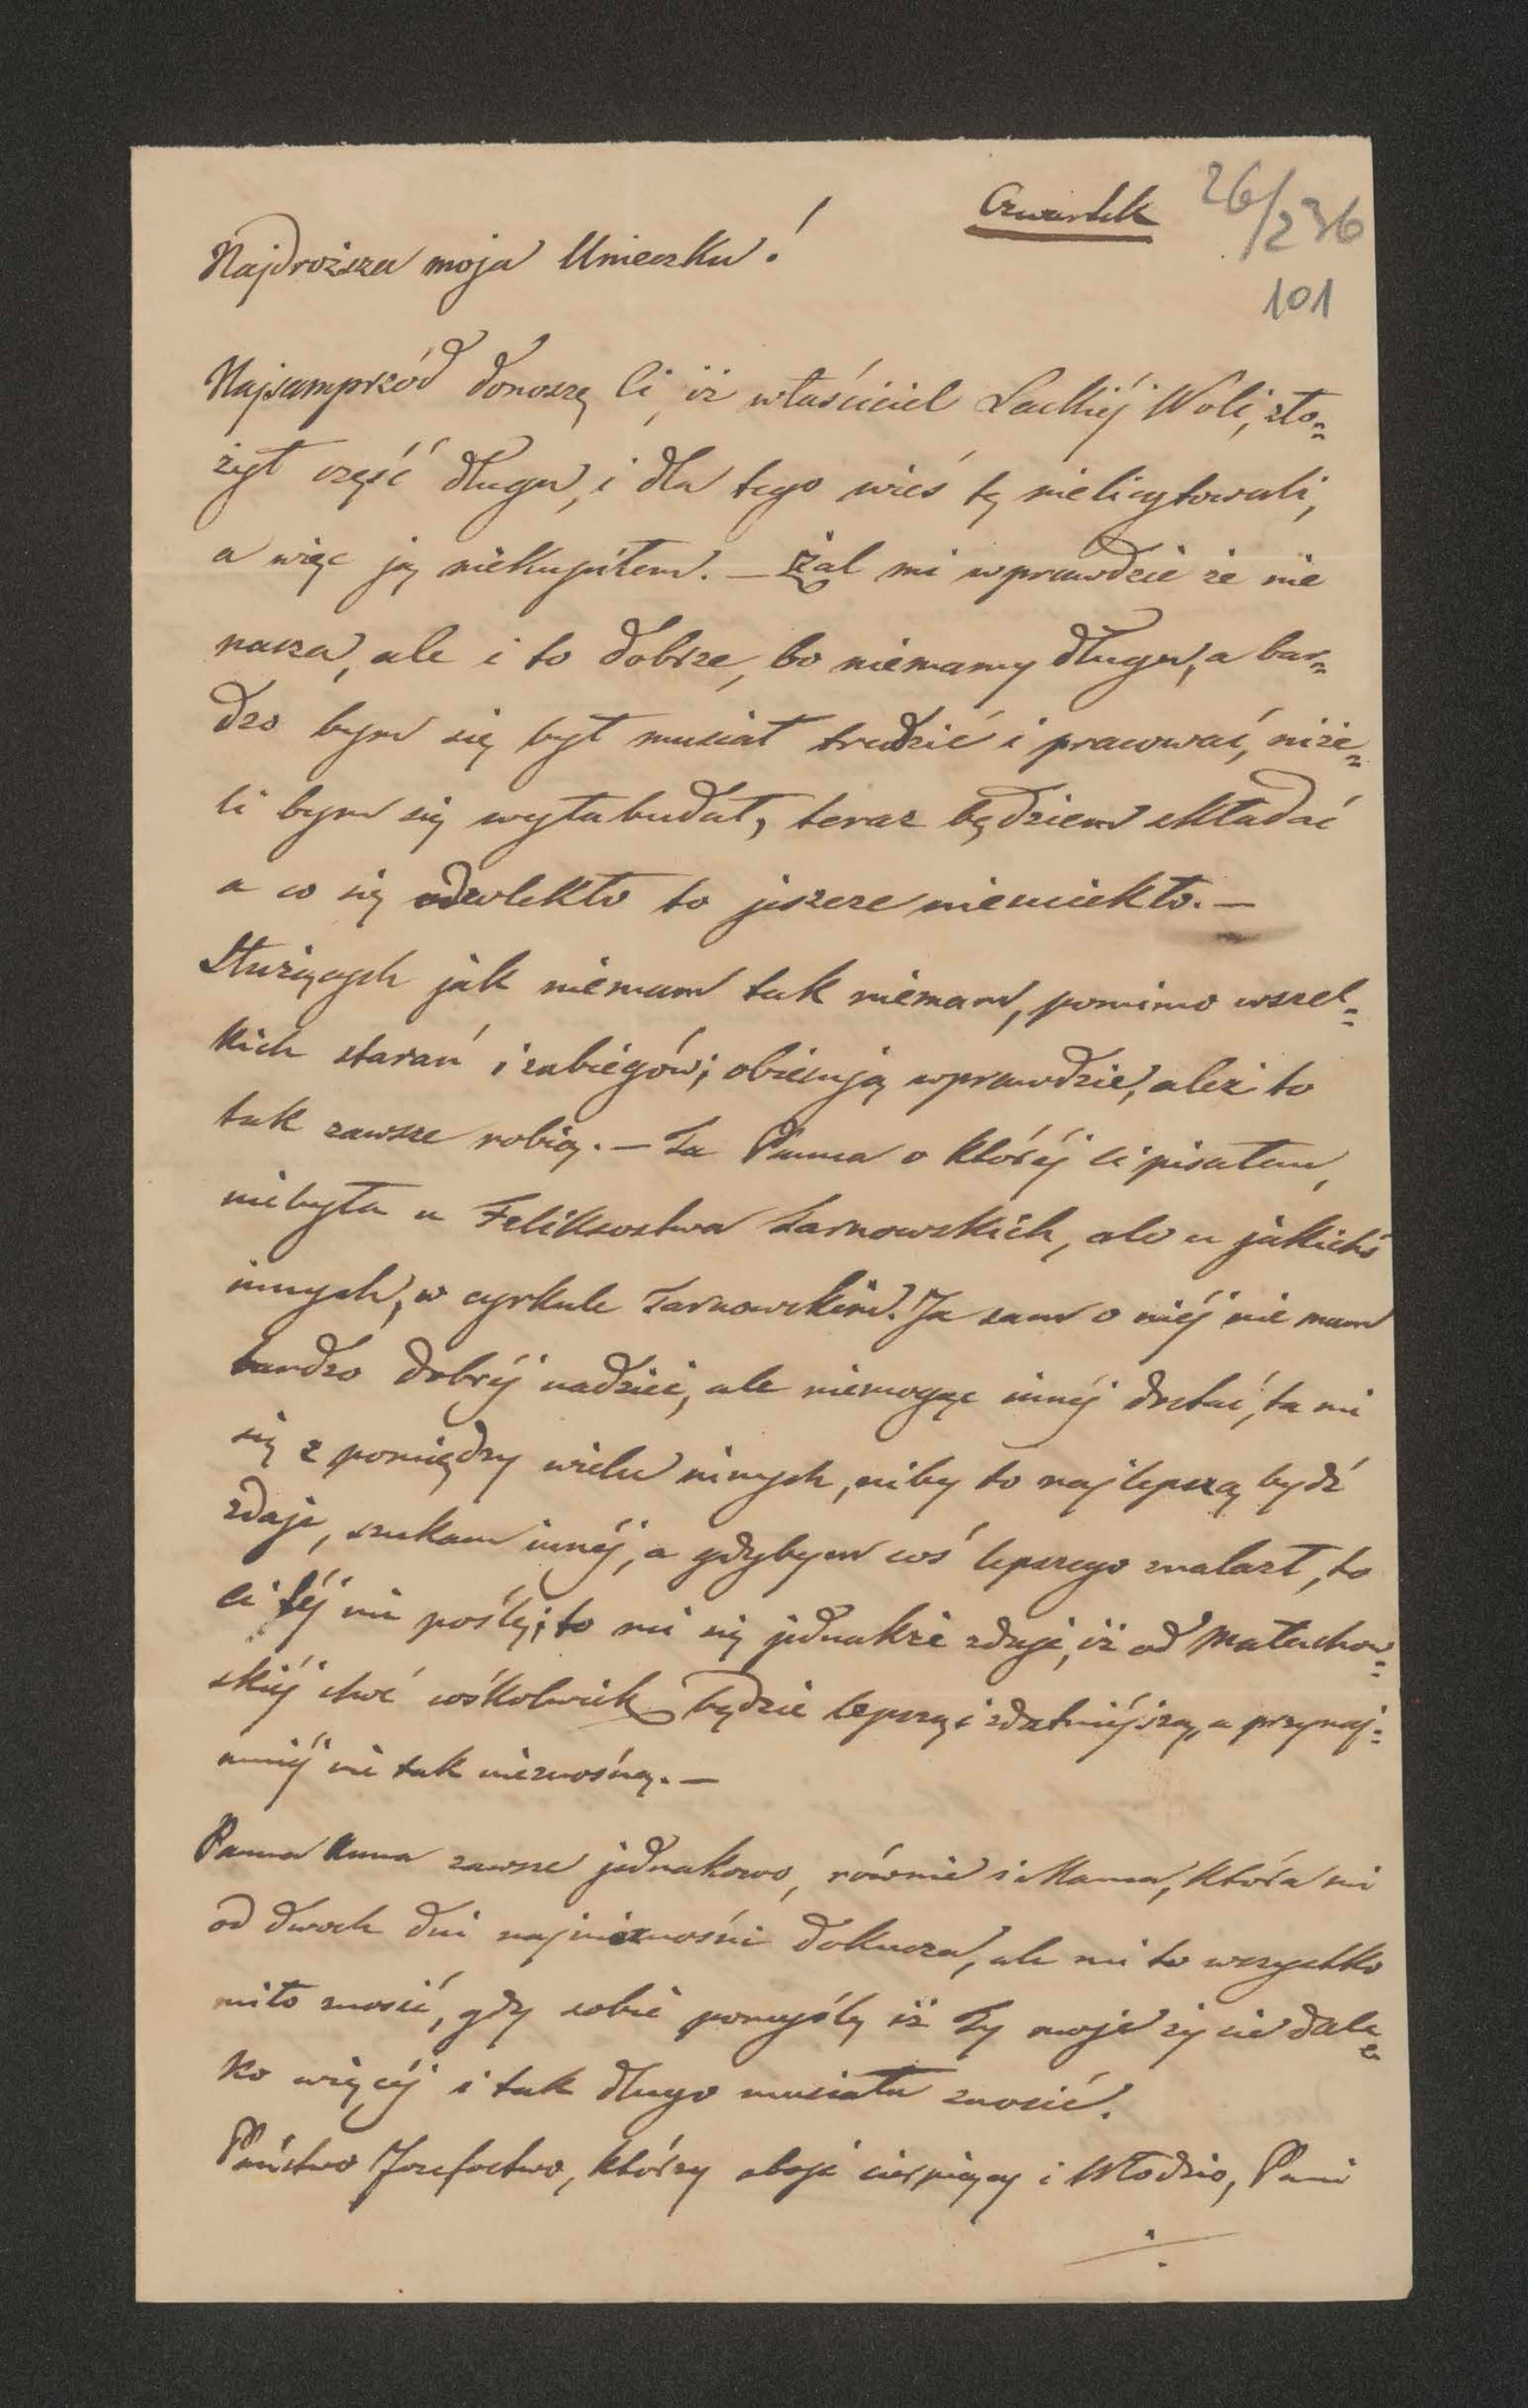 Czwartek
26/236
101
Najdroższa moja Unieczku!
Najsamprzód donoszę Ci, iż właściciel Lackiéj Woli, zło=
żył część długu, i dla tego wieś tę nielicytowali,
a więc ją niekupiłem. — Żal mi wprawdzie że nie
nasza, ale i to dobrze, bo niemamy długu, a bar=
dzo bym się był musiał trudzić i pracować, niże=
li bym się wyłabudał, teraz będziem składać
a co się odwlekło to jeszcze nieuciekło. —
Służących jak niemam tak niemam, pomimo wszel=
kich starań i zabiegów; obiecują wprawdzie, ależ to
tak zawsze robią. — Ta Panna o któréj ci pisałem,
niebyła u Feliksostwa Tarnowskich, ale u jakichś
innych, w cyrkule Tarnowskim. Ja sam o niéj nie mam
bardzo dobréj nadziei, ale niemogąc innéj dostać, ta mi
się z pomiędzy wielu innych, niby to najlepszą bydź
zdaje, szukam innéj, a gdybym coś lepszego znalazł, to
ci téj nie poślę; to mi się jednakże zdaje, iż od Małachow=
skiéj choć cośkolwiek będzie lepszą i zdatniéjszą, a przynaj=
mniéj nie tak nieznośną. —
Panna Anna zawsze jednakowo, równie i Mama, która mi
od dwoch dni najnieznośnié dokucza, ale mi to wszystko
miło znosić, gdy sobie pomyślę iż Ty moje życie dale=
ko więcéj i tak długo musiała znosić.
Państwo Józefostwo, którzy oboje cierpiący i Włodzio, Pani